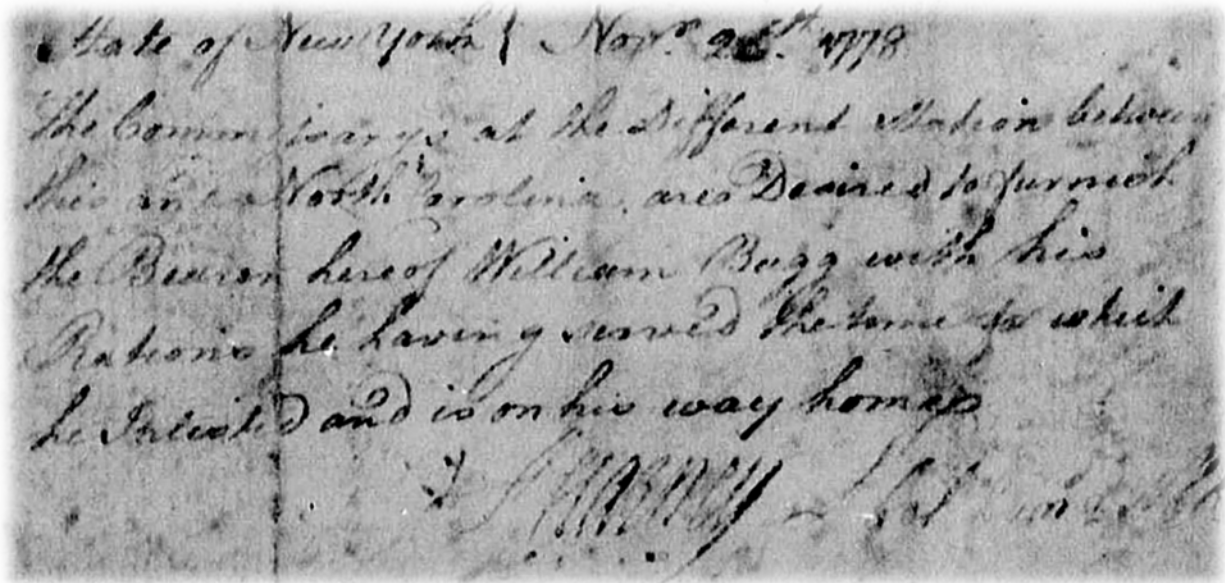 State of New York } Novr. 1778
The Commissarys at the Different Station between
this and North Carolina are Desired to furnish
the Bearer hereof William Bugg with his
Rations he having served the time for which
he Inlisted and is on his way home
Col